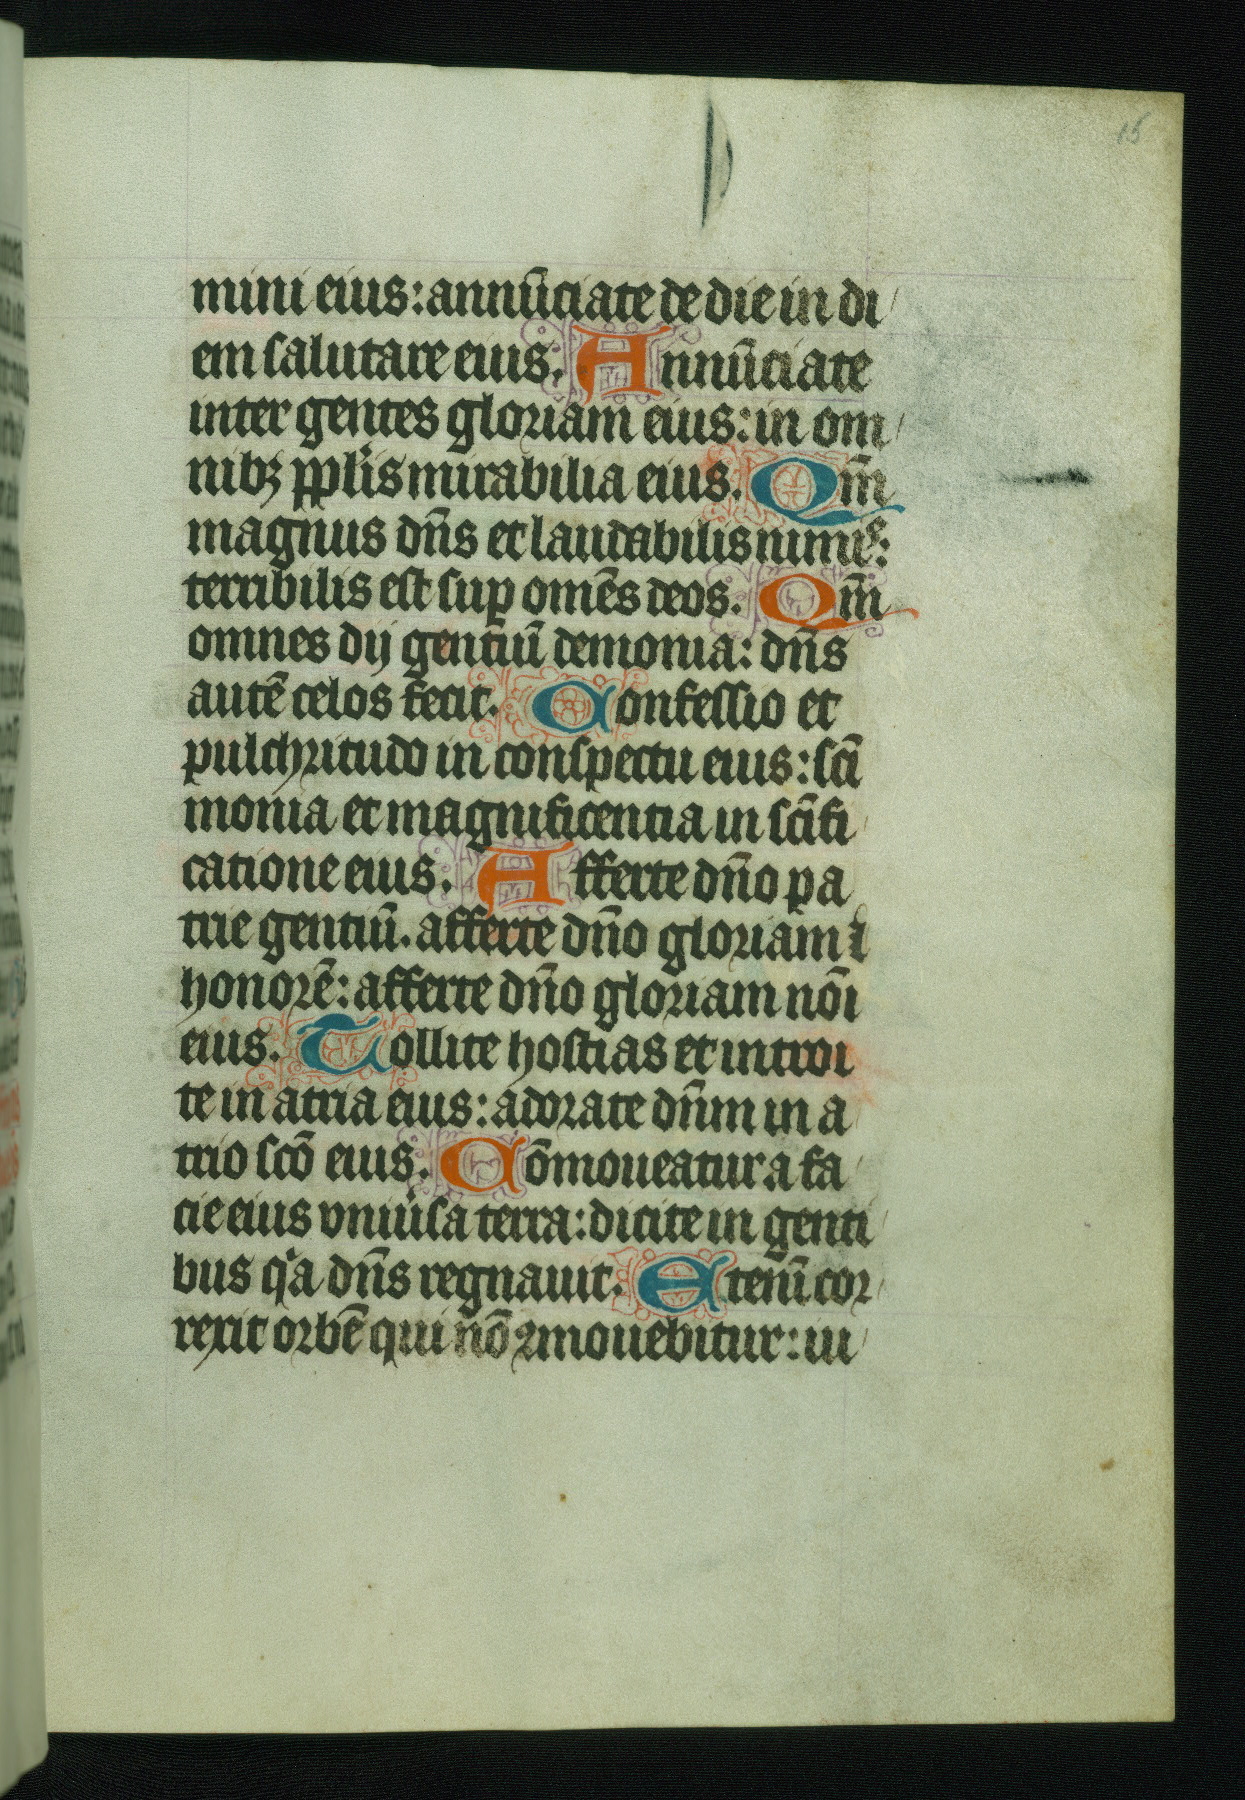 15
mini eius: annūciate de die in di
em salutare eius. Annūciate
inter gentes gloriam eius: in om
nibꝫ ppl̓is mirabilia eius. Qm̄
magnus dn̄s et laudabilis nimis:
terribilis est suꝑ omēs deos. Qm̄
omnes dij gentiū demonia: dn̄s
autē celos fecit. Confessio et
pulchritudo in conspectu eius: sc̄i
monia et magnificentia in sc̄ifi
catione eius. Afferte dn̄o pa
trie gentiū. afferte dn̄o gloriam ⁊
honorē: afferte dn̄o gloriam nōi
eius. Tollite hostias et introi
te in atria eius: adorate dn̄m in a
trio scō eius. Cōmoueatur a fa
cie eius vniu̓sa terra: dicite in genti
bus qͥa dn̄s regnauit. Eteni̅ cor
rexit orbē qui nō ꝯmouebitur: iu